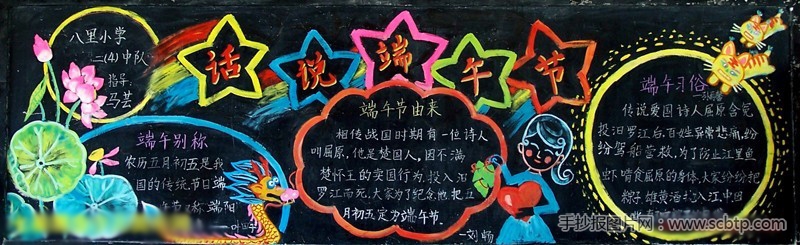 八里小学
二(4)中队
指导:
马芸
话说端午节
端午别称
农历五月初五是我
国的传统节日端
午节又称端阳
端午节由来
相传战国时期有一位诗人
叫屈原,他是楚国人,因不满
楚怀王的卖国行为,投入汨
罗江而死,大家为了纪念他把五
月初五定为端午节。
—刘畅
端午习俗
传说爱国诗人屈原含冤
投汨罗江后,百姓异常悲痛,纷
纷驾船营救,为了防止江里鱼
虾啃食屈原的身体,大家纷纷把
粽子雄黄酒
入江中
手抄报图片网:www.scbtp.com